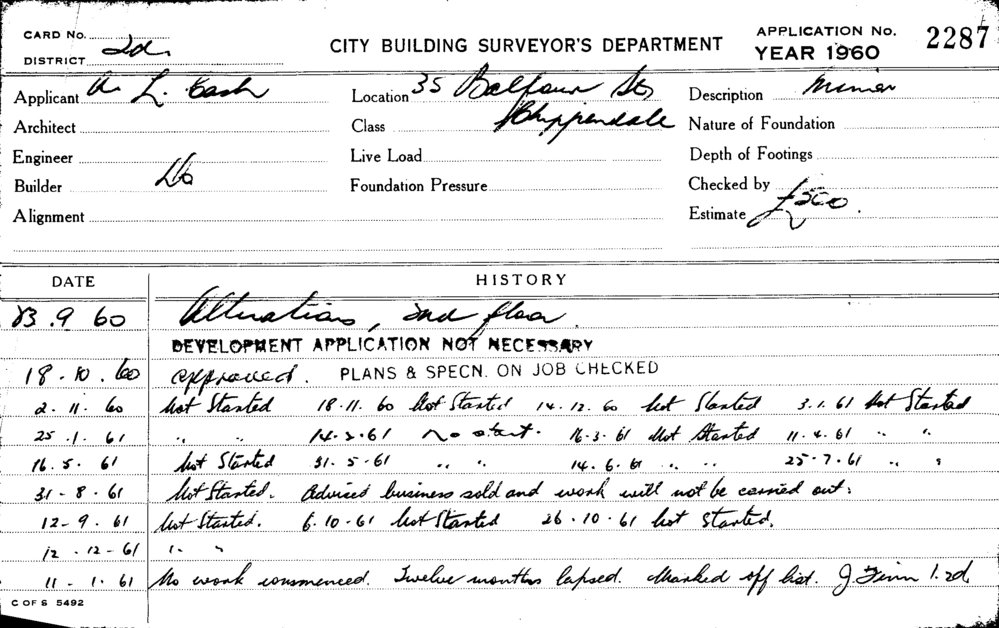 CARD No.
DISTRICT 2d.
CITY BUILDING SURVEYOR'S DEPARTMENT
APPLICATION No. 2287
YEAR 1960
Applicant A. L. Cash
Location 35 Balfour St, Chippendale
Description Minor
Architect
Class
Nature of Foundation
Engineer
Live Load
Depth of Footings
Builder Do
Foundation Pressure
Checked by
Alignment
Estimate £500.
DATE HISTORY
23.9.60 Alterations, 2nd floor.
DEVELOPMENT APPLICATION NOT NECESSARY
18.10.60 approved. PLANS & SPECN. ON JOB CHECKED
2.11.60 Not Started 18.11.60 Not Started 14.12.60 Not Started 3.1.61 Not Started
25.1.61 " " 14.2.61 No start. 16.3.61 Not Started 11.4.61 " "
16.5.61 Not Started 31.5.61 " " 14.6.61 " " 25.7.61 " "
31-8-61 Not Started. Advised business sold and work will not be carried out.
12-9.61 Not Started. 6.10.61 Not Started 26.10.61 Not Started.
12.12-61 " "
11-1.61 No work commenced. Twelve months lapsed. Marked off list. J Finn 1.2d
C OF S 5492